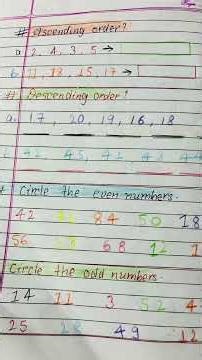 # Ascending order?
a 2, 4, 3, 5 →
b. 11, 13, 15, 17 →
# Descending order?
a. 17, 20, 19, 16, 18
42, 45, 41, 44
Circle the even numbers.
42 84 50 18
56 68 12 1
Circle the odd numbers.
14 11 3 52 4
25 28 49 12